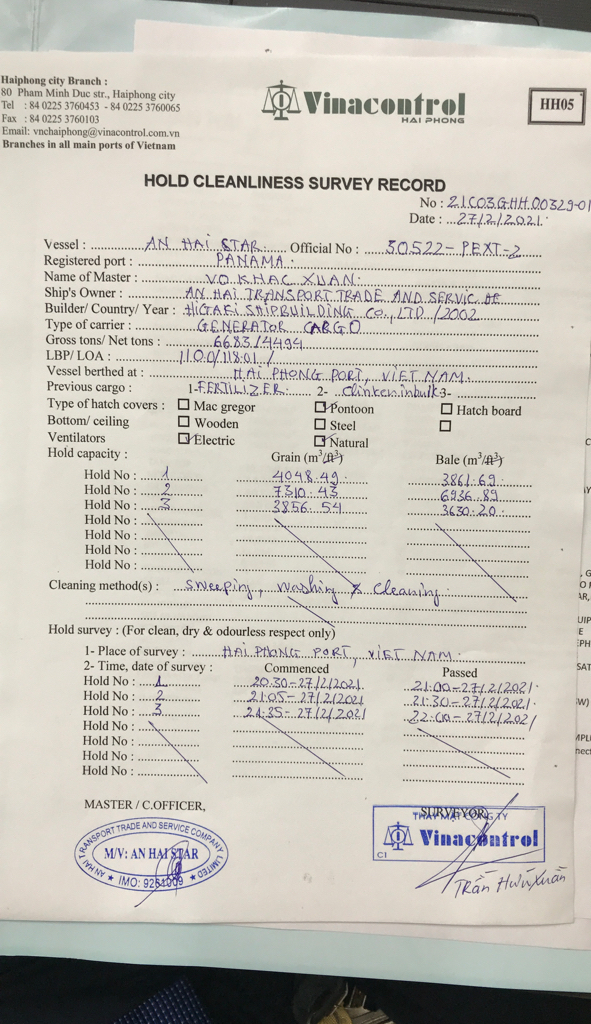 Haiphong city Branch :
80 Pham Minh Duc str., Haiphong city
Tel : 84 0225 3760453 - 84 0225 3760065
Fax : 84 0225 3760103
Email: vnchaiphong@vinacontrol.com.vn
Branches in all main ports of Vietnam
Vinacontrol
HAI PHONG
HH05
HOLD CLEANLINESS SURVEY RECORD
No : 21C03GHH.00329-01
Date : 27/2/2021
Vessel : AN HAI STAR Official No : 30522-PEXT-2
Registered port : PANAMA
Name of Master : VO KHAC XUAN
Ship's Owner : AN HAI TRANSPORT TRADE AND SERVIC
Builder/ Country/ Year : HIGAKI SHIPBUILDING CO., LTD / 2002
Type of carrier : GENERATOR CARGO
Gross tons/ Net tons : 6683/4494
LBP/ LOA : 110.0/118.01 /
Vessel berthed at : HAI PHONG PORT, VIET NAM
Previous cargo : 1- FERTILIZER 2- Clinker in bulk 3-
Type of hatch covers : Mac gregor Pontoon Hatch board
Bottom/ ceiling Wooden Steel
Ventilators Electric Natural
Hold capacity : Grain (m³/ft³) Bale (m³/ft³)
Hold No : 1 4048.49 3861.69
Hold No : 2 7310.43 6936.89
Hold No : 3 3856.54 3630.20
Hold No :
Hold No :
Hold No :
Cleaning method(s) : sweeping, washing & cleaning
Hold survey : (For clean, dry & odourless respect only)
1- Place of survey : HAI PHONG PORT, VIET NAM
2- Time, date of survey : Commenced Passed
Hold No : 1 20.30-27/2/2021 21.00-27/2/2021
Hold No : 2 21.05-27/2/2021 21.30-27/2/2021
Hold No : 3 21.35-27/2/2021 22.00-27/2/2021
Hold No :
Hold No :
Hold No :
MASTER / C.OFFICER, SURVEYOR
AN HAI TRANSPORT TRADE AND SERVICE COMPANY LIMITED
M/V: AN HAI STAR
IMO: 9261009
THAY MẶT CÔNG TY
Vinacontrol
C1
Trần Hữu Xuân